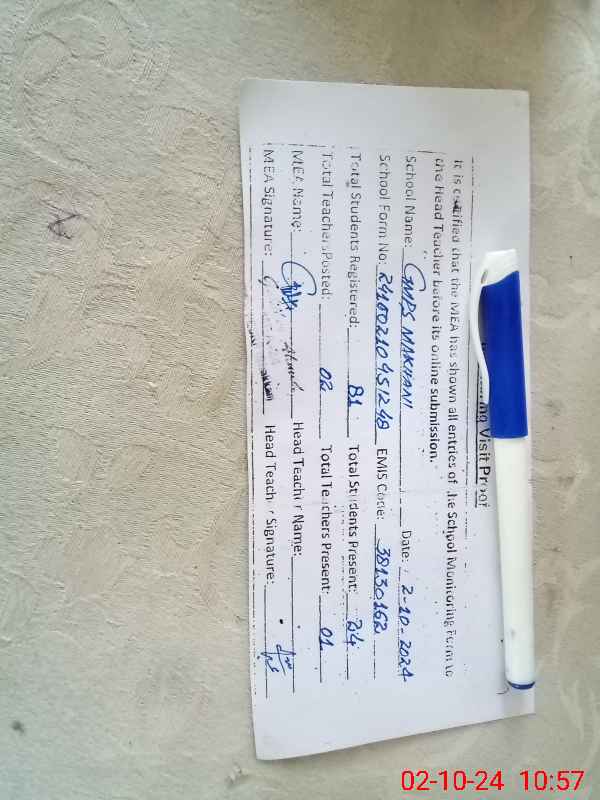 ing Visit Proof
It is certified that the MEA has shown all entries of the School Monitoring Form to
the Head Teacher before its online submission.
School Name: GMPS MAKWANI Date: 2-10-2024
School Form No: EMIS Code: 38130162
Total Students Registered: 81 Total Students Present: 24
Total Teachers Posted: 02 Total Teachers Present: 01
MEA Name: Head Teacher Name:
MEA Signature: Head Teacher Signature:
02-10-24 10:57